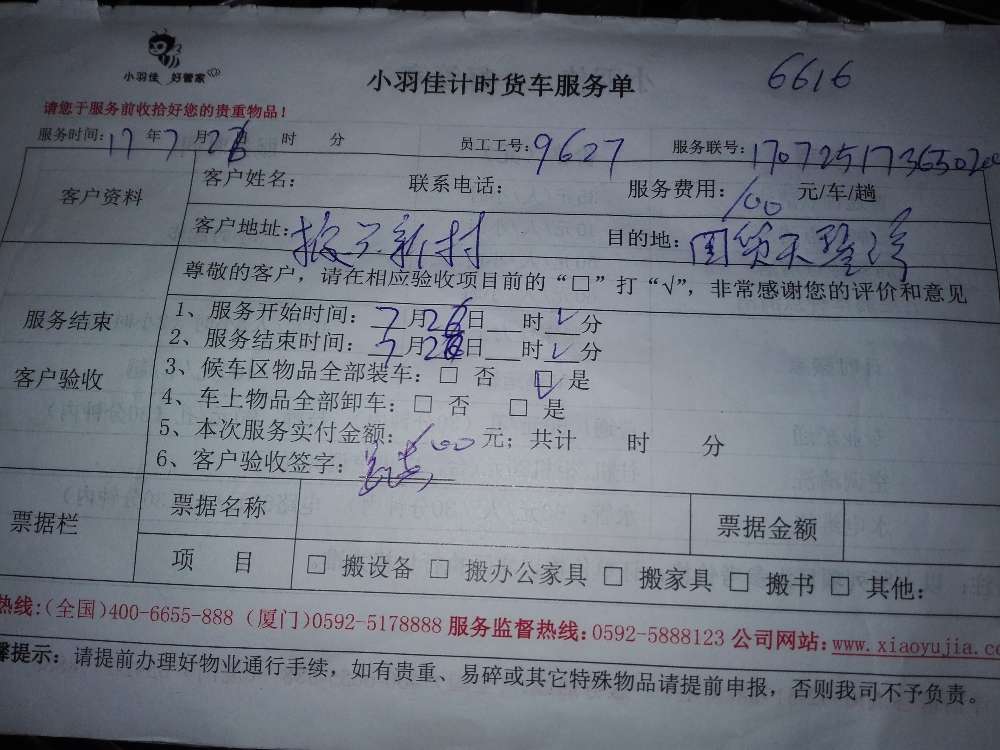 小羽佳 好管家
小羽佳计时货车服务单
6616
请您于服务前收拾好您的贵重物品！
服务时间：17年7月26日 时 分 员工工号：9627 服务联号：170725173650200
客户资料 客户姓名： 联系电话： 服务费用：100 元/车/趟
客户地址：振兴新村 目的地：国贸天
尊敬的客户，请在相应验收项目前的“□”打“√”，非常感谢您的评价和意见
服务结束
客户验收
1、服务开始时间：7月26日___时√分
2、服务结束时间：7月26日___时√分
3、候车区物品全部装车：□ 否 ☑ 是
4、车上物品全部卸车：□ 否 □ 是
5、本次服务实付金额：100 元；共计 时 分
6、客户验收签字：
票据栏 票据名称 票据金额
项 目 □ 搬设备 □ 搬办公家具 □ 搬家具 □ 搬书 □ 其他：
热线：(全国)400-6655-888 (厦门)0592-5178888 服务监督热线：0592-5888123 公司网站：www.xiaoyujia.co
馨提示：请提前办理好物业通行手续，如有贵重、易碎或其它特殊物品请提前申报，否则我司不予负责。